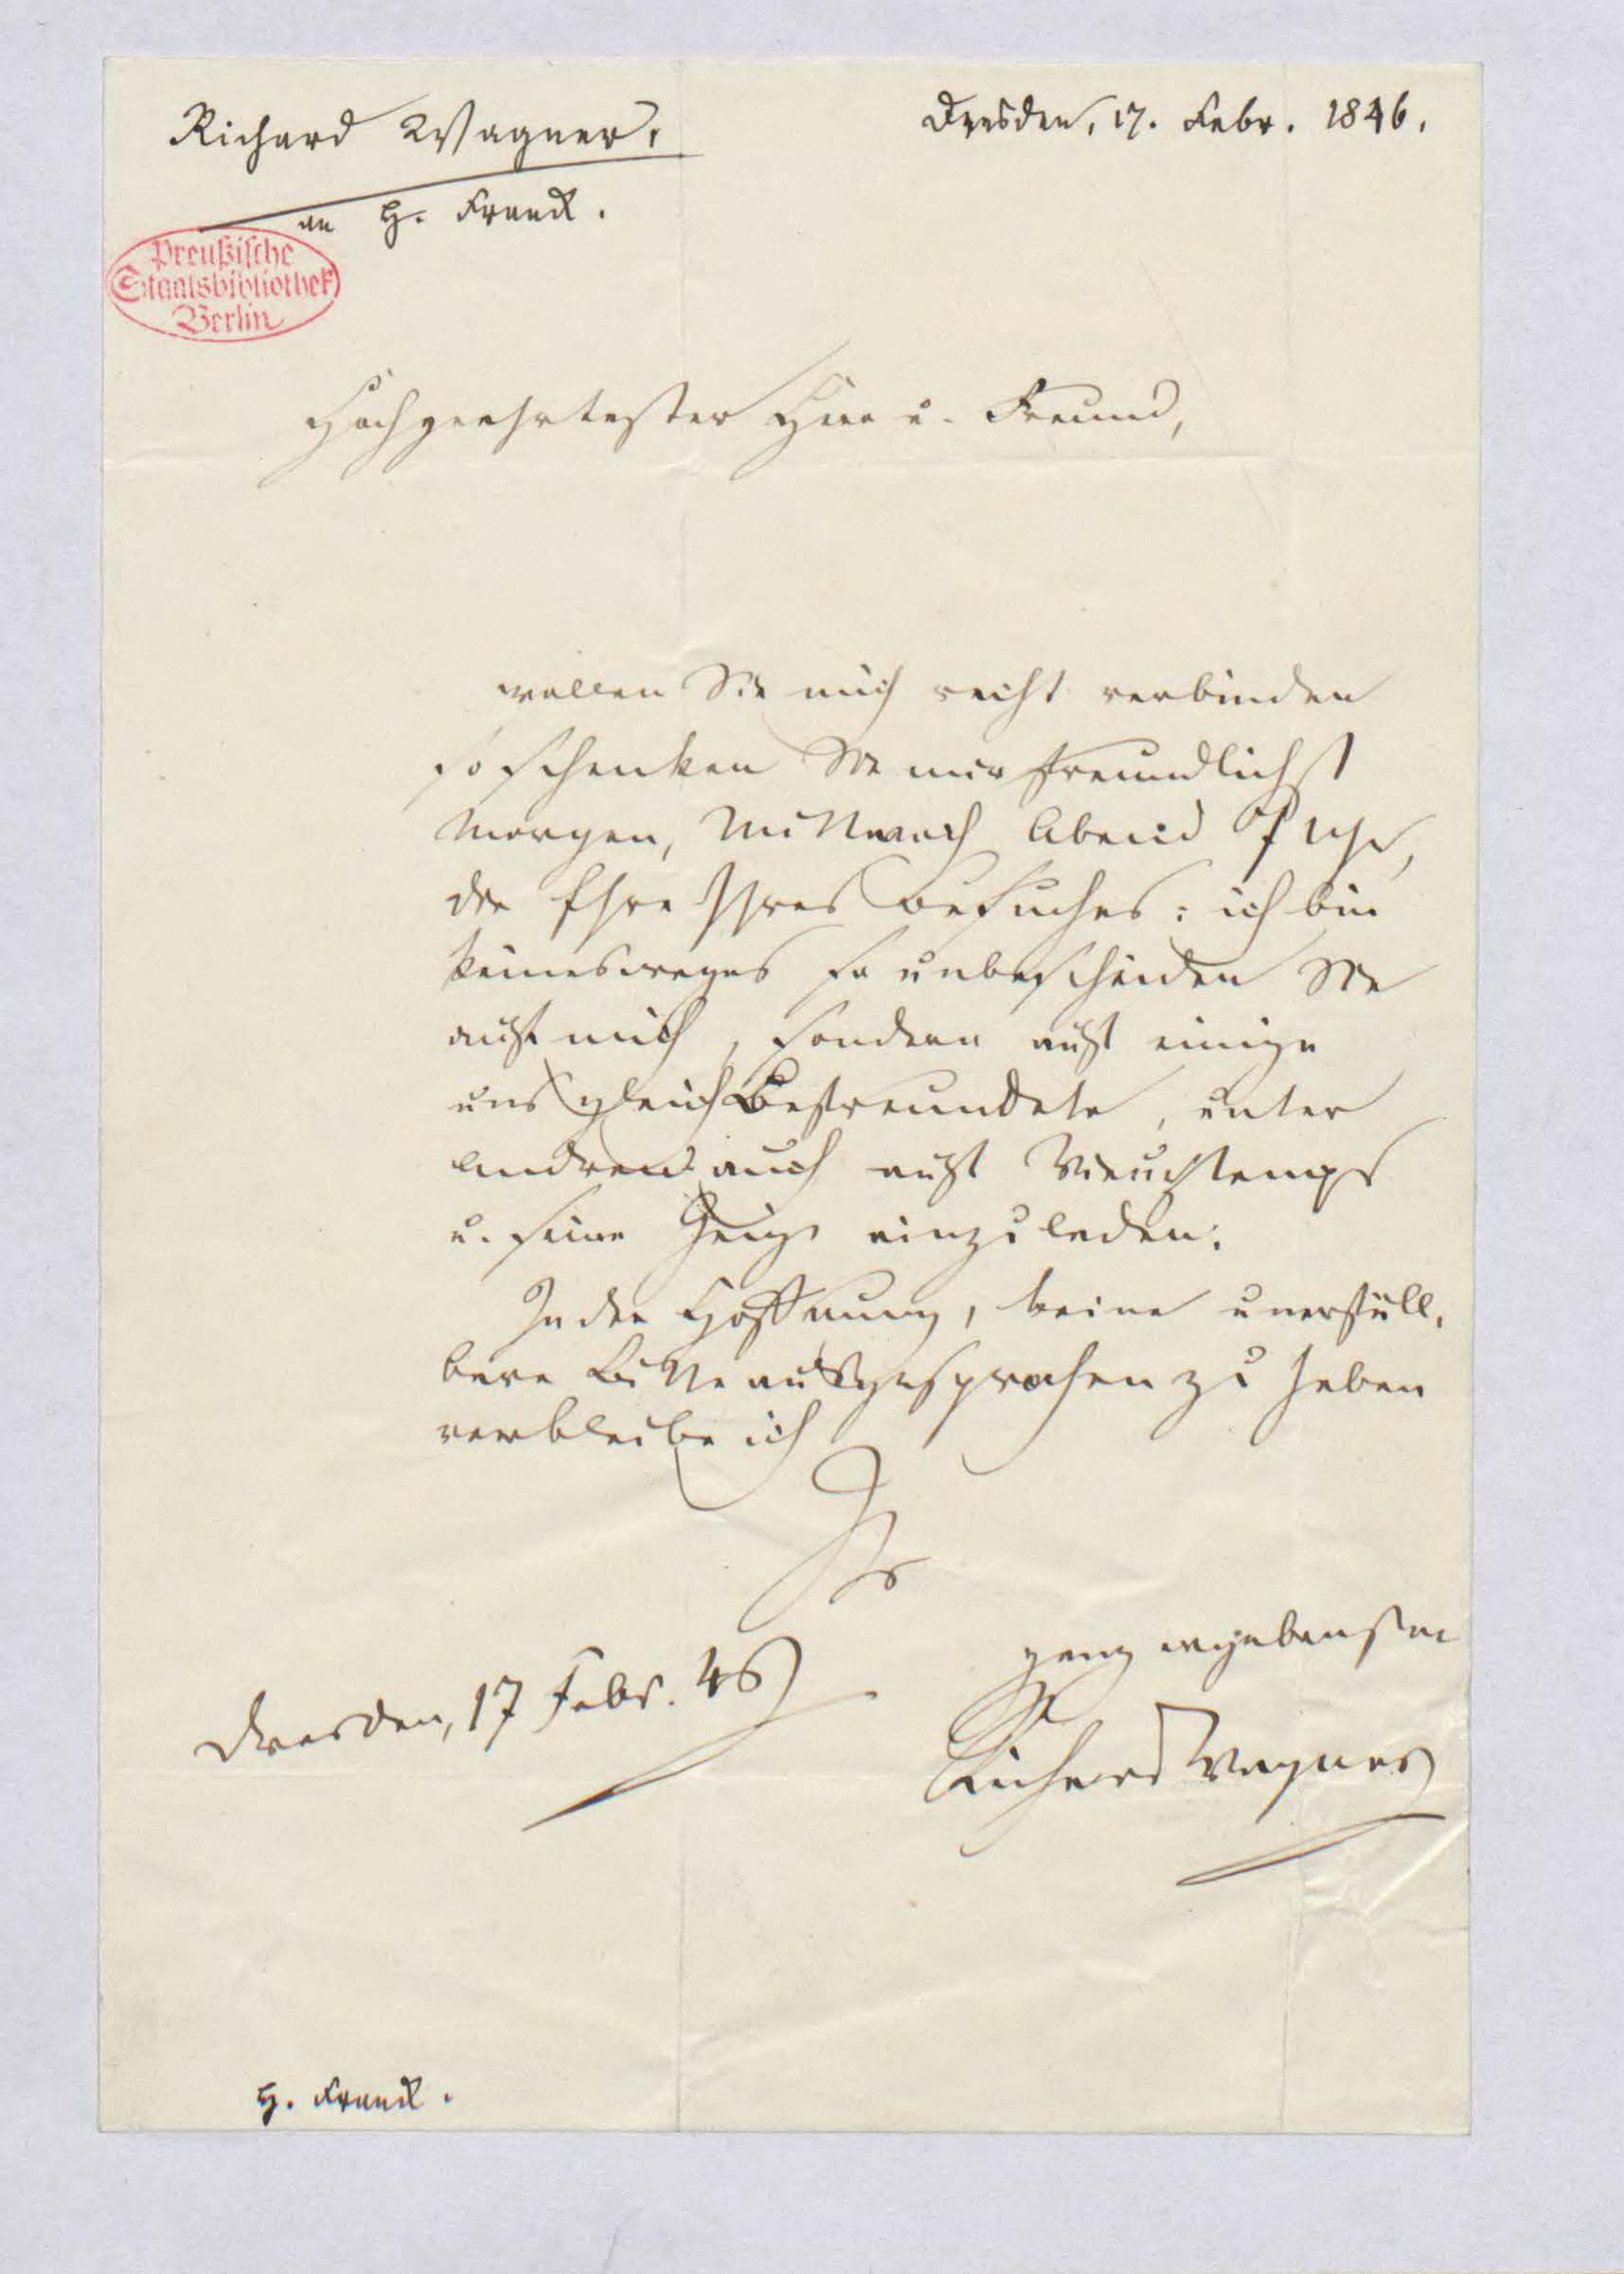 Richard Wagner,
Dresden, 17. Febr. 1846.
an H. Franck.
Preußische
Staatsbibliothek
Berlin
Hochgeehrtester Herr u. Freund,
wollen Sie mich recht verbinden
so schenken Sie mir freundlichst
morgen, Mittwoch Abend 7 Uhr,
die Ehre Ihres Besuches: ich bin
keinesweges so unbescheiden Sie
auf mich, sondern auf einige
uns gleich Befreundete, unter
andren auch auf Vieuxtemps
u. seine Geige einzuladen.
In der Hoffnung, keine unerfüll-
bare Bitte ausgesprochen zu haben
verbleibe ich
Ihr
ganz ergebenster
Dresden, 17 Febr. 46
Richard Wagner
H. Franck.